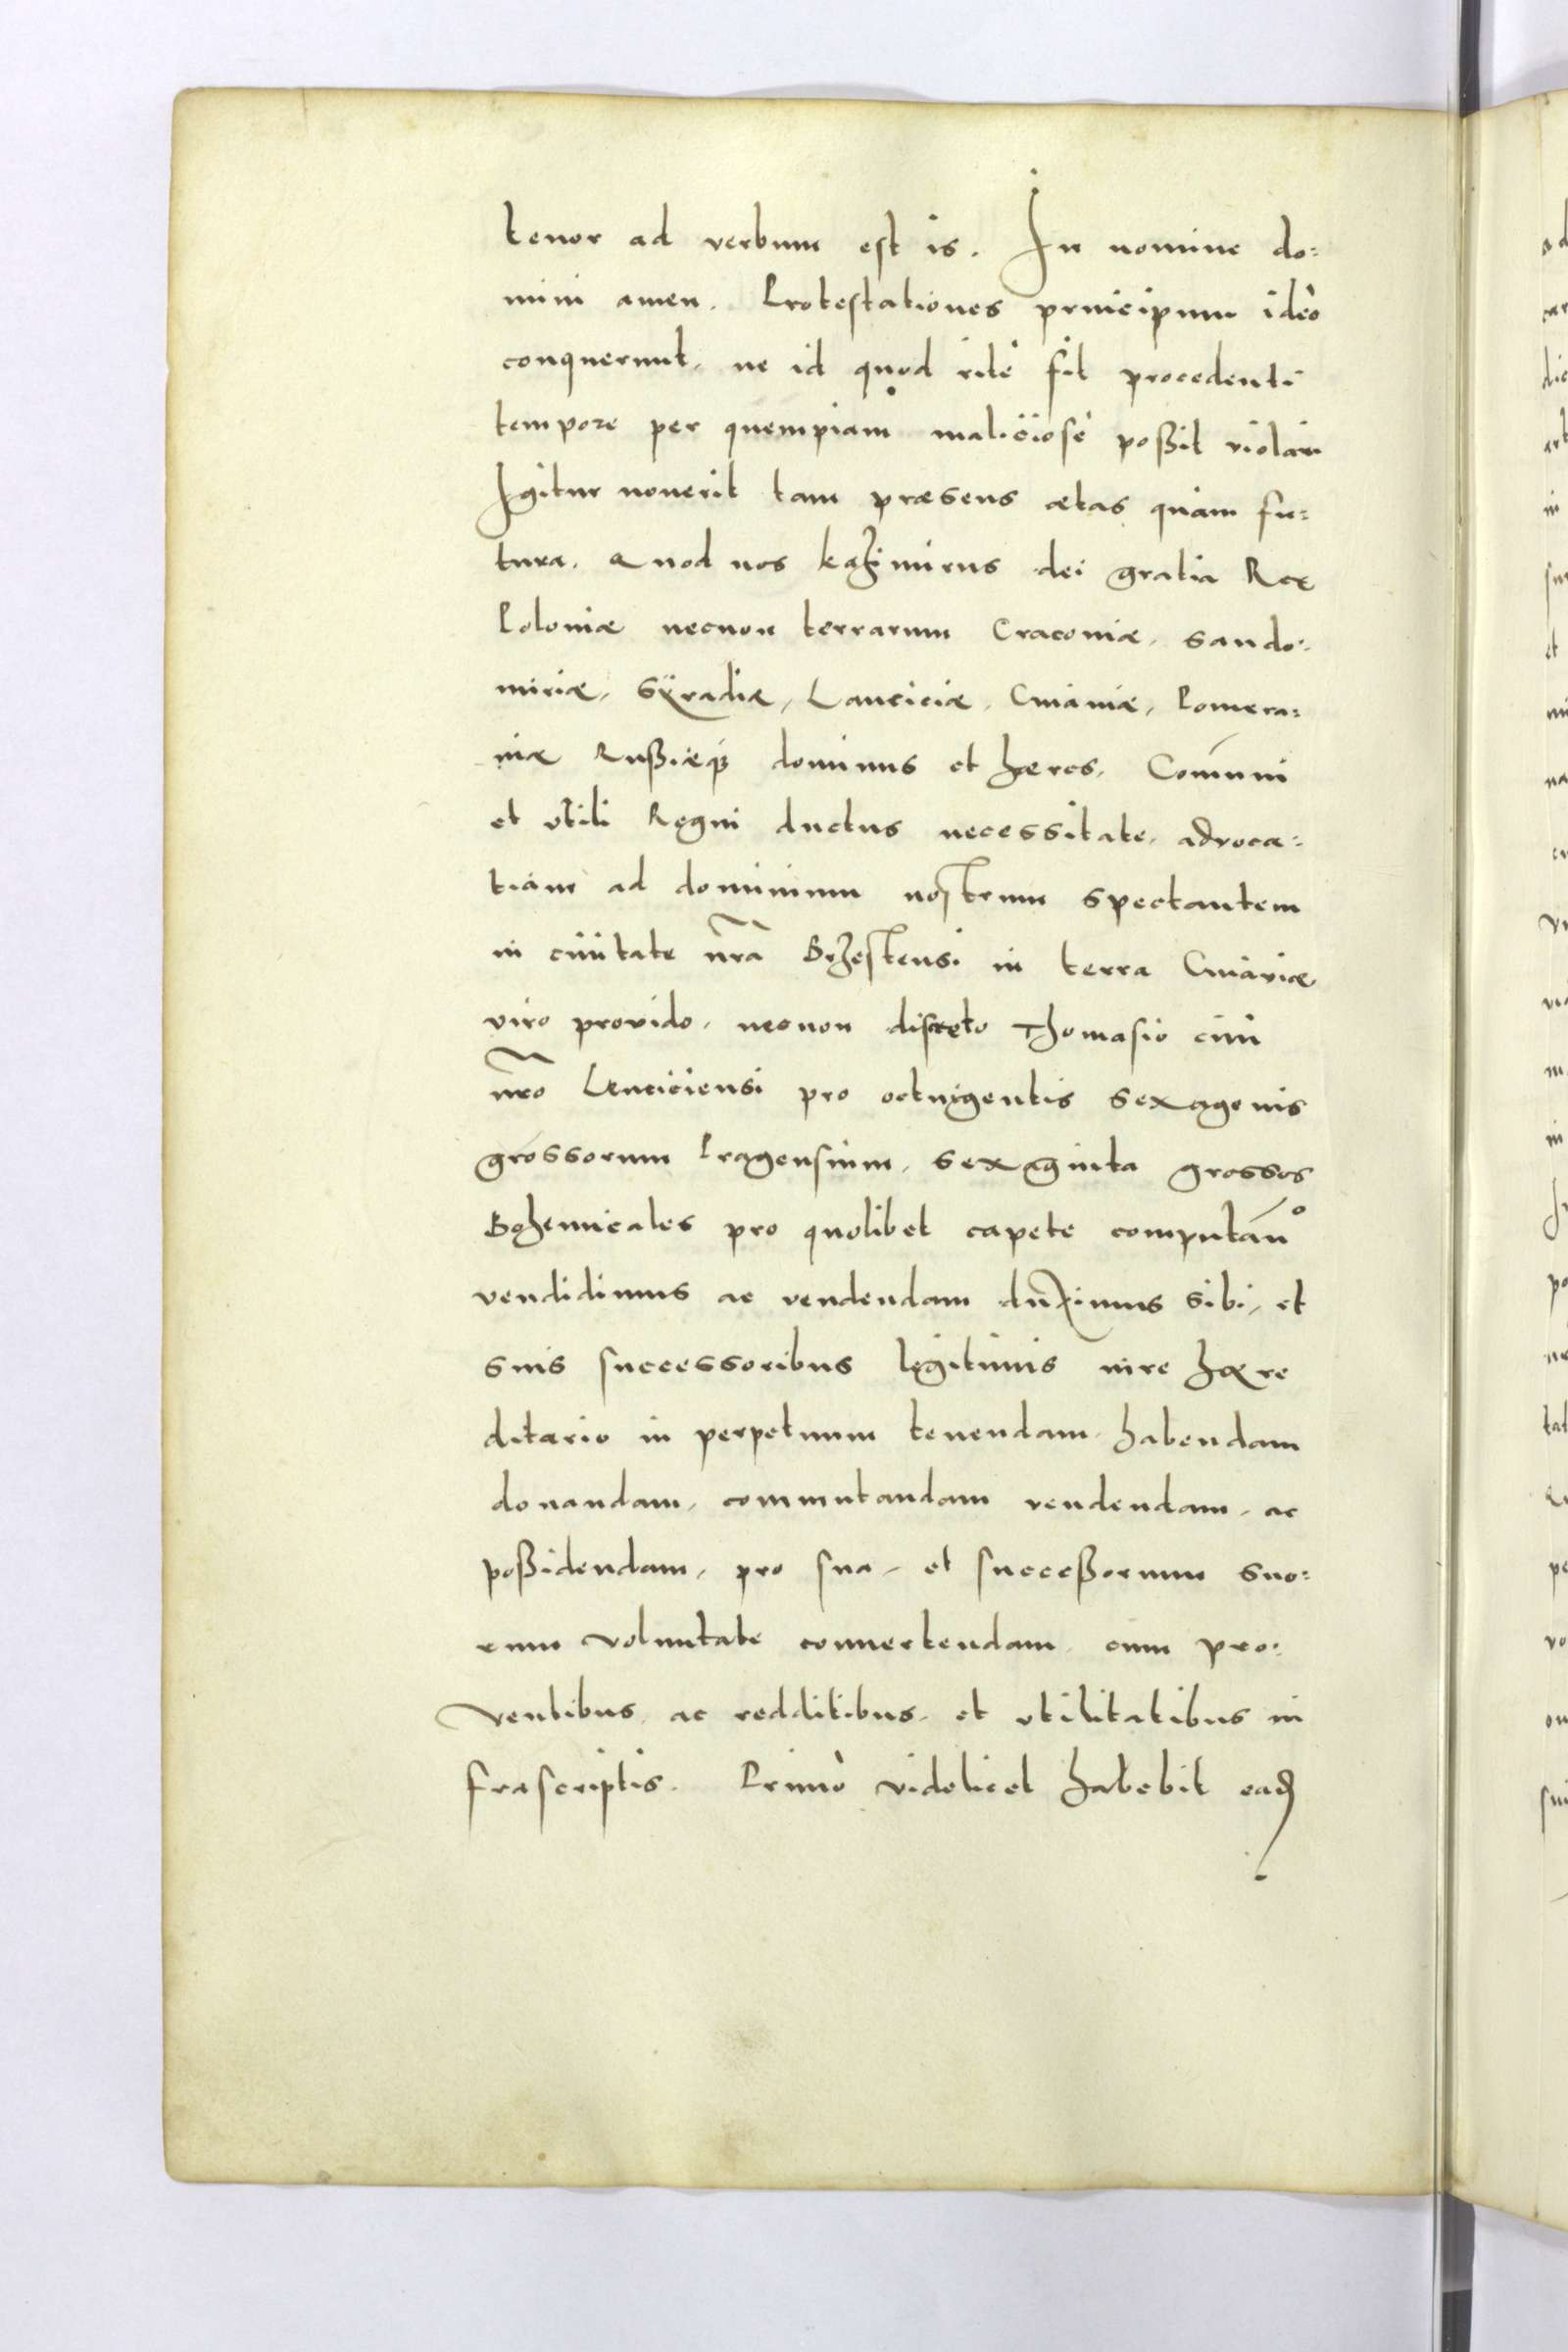 tenor ad verbum est is. In nomine do:
mini amen. Protestationes principum ideò
conquerunt, ne id quod ritè fit procedenti
tempore per quempiam maliciosè poßit violari
Igitur nouerit tam præsens ætas quàm fu:
tura. Quod nos Kazimirus dei gratia Rex
Poloniæ necnon terrarum Cracoviæ, Sando:
miriæ, Sÿradiæ, Lanciciæ, Cuiaviæ, Pomera:
niæ Rußiæq3 dominus et hæres, Com̄uni
et vtili Regni ductus necessitate, advoca:
tiam ad dominium nostrum spectantem
in ciuitate nr̄a Brzestensi in terra Cuiaviæ
viro provido, necnon discreto Thomasio ciui
nr̄o Lenciciensi pro octuigentis sexagenis
grossorum Pragensium, sexaginta grossos
Bohemicales pro quolibet capete computan̄º
vendidimus ac vendendam duximus sibi, et
suis successoribus legitimis iure hære
ditario in perpetuum tenendam, habendam
donandam, commutandam vendendam, ac
poßidendam, pro sua, et succeßorum suo:
rum voluntate conuertendam, cum pro:
ventibus, ac redditibus, et vtilitatibus in
frascriptis. Primò videlicet habebit ead̄